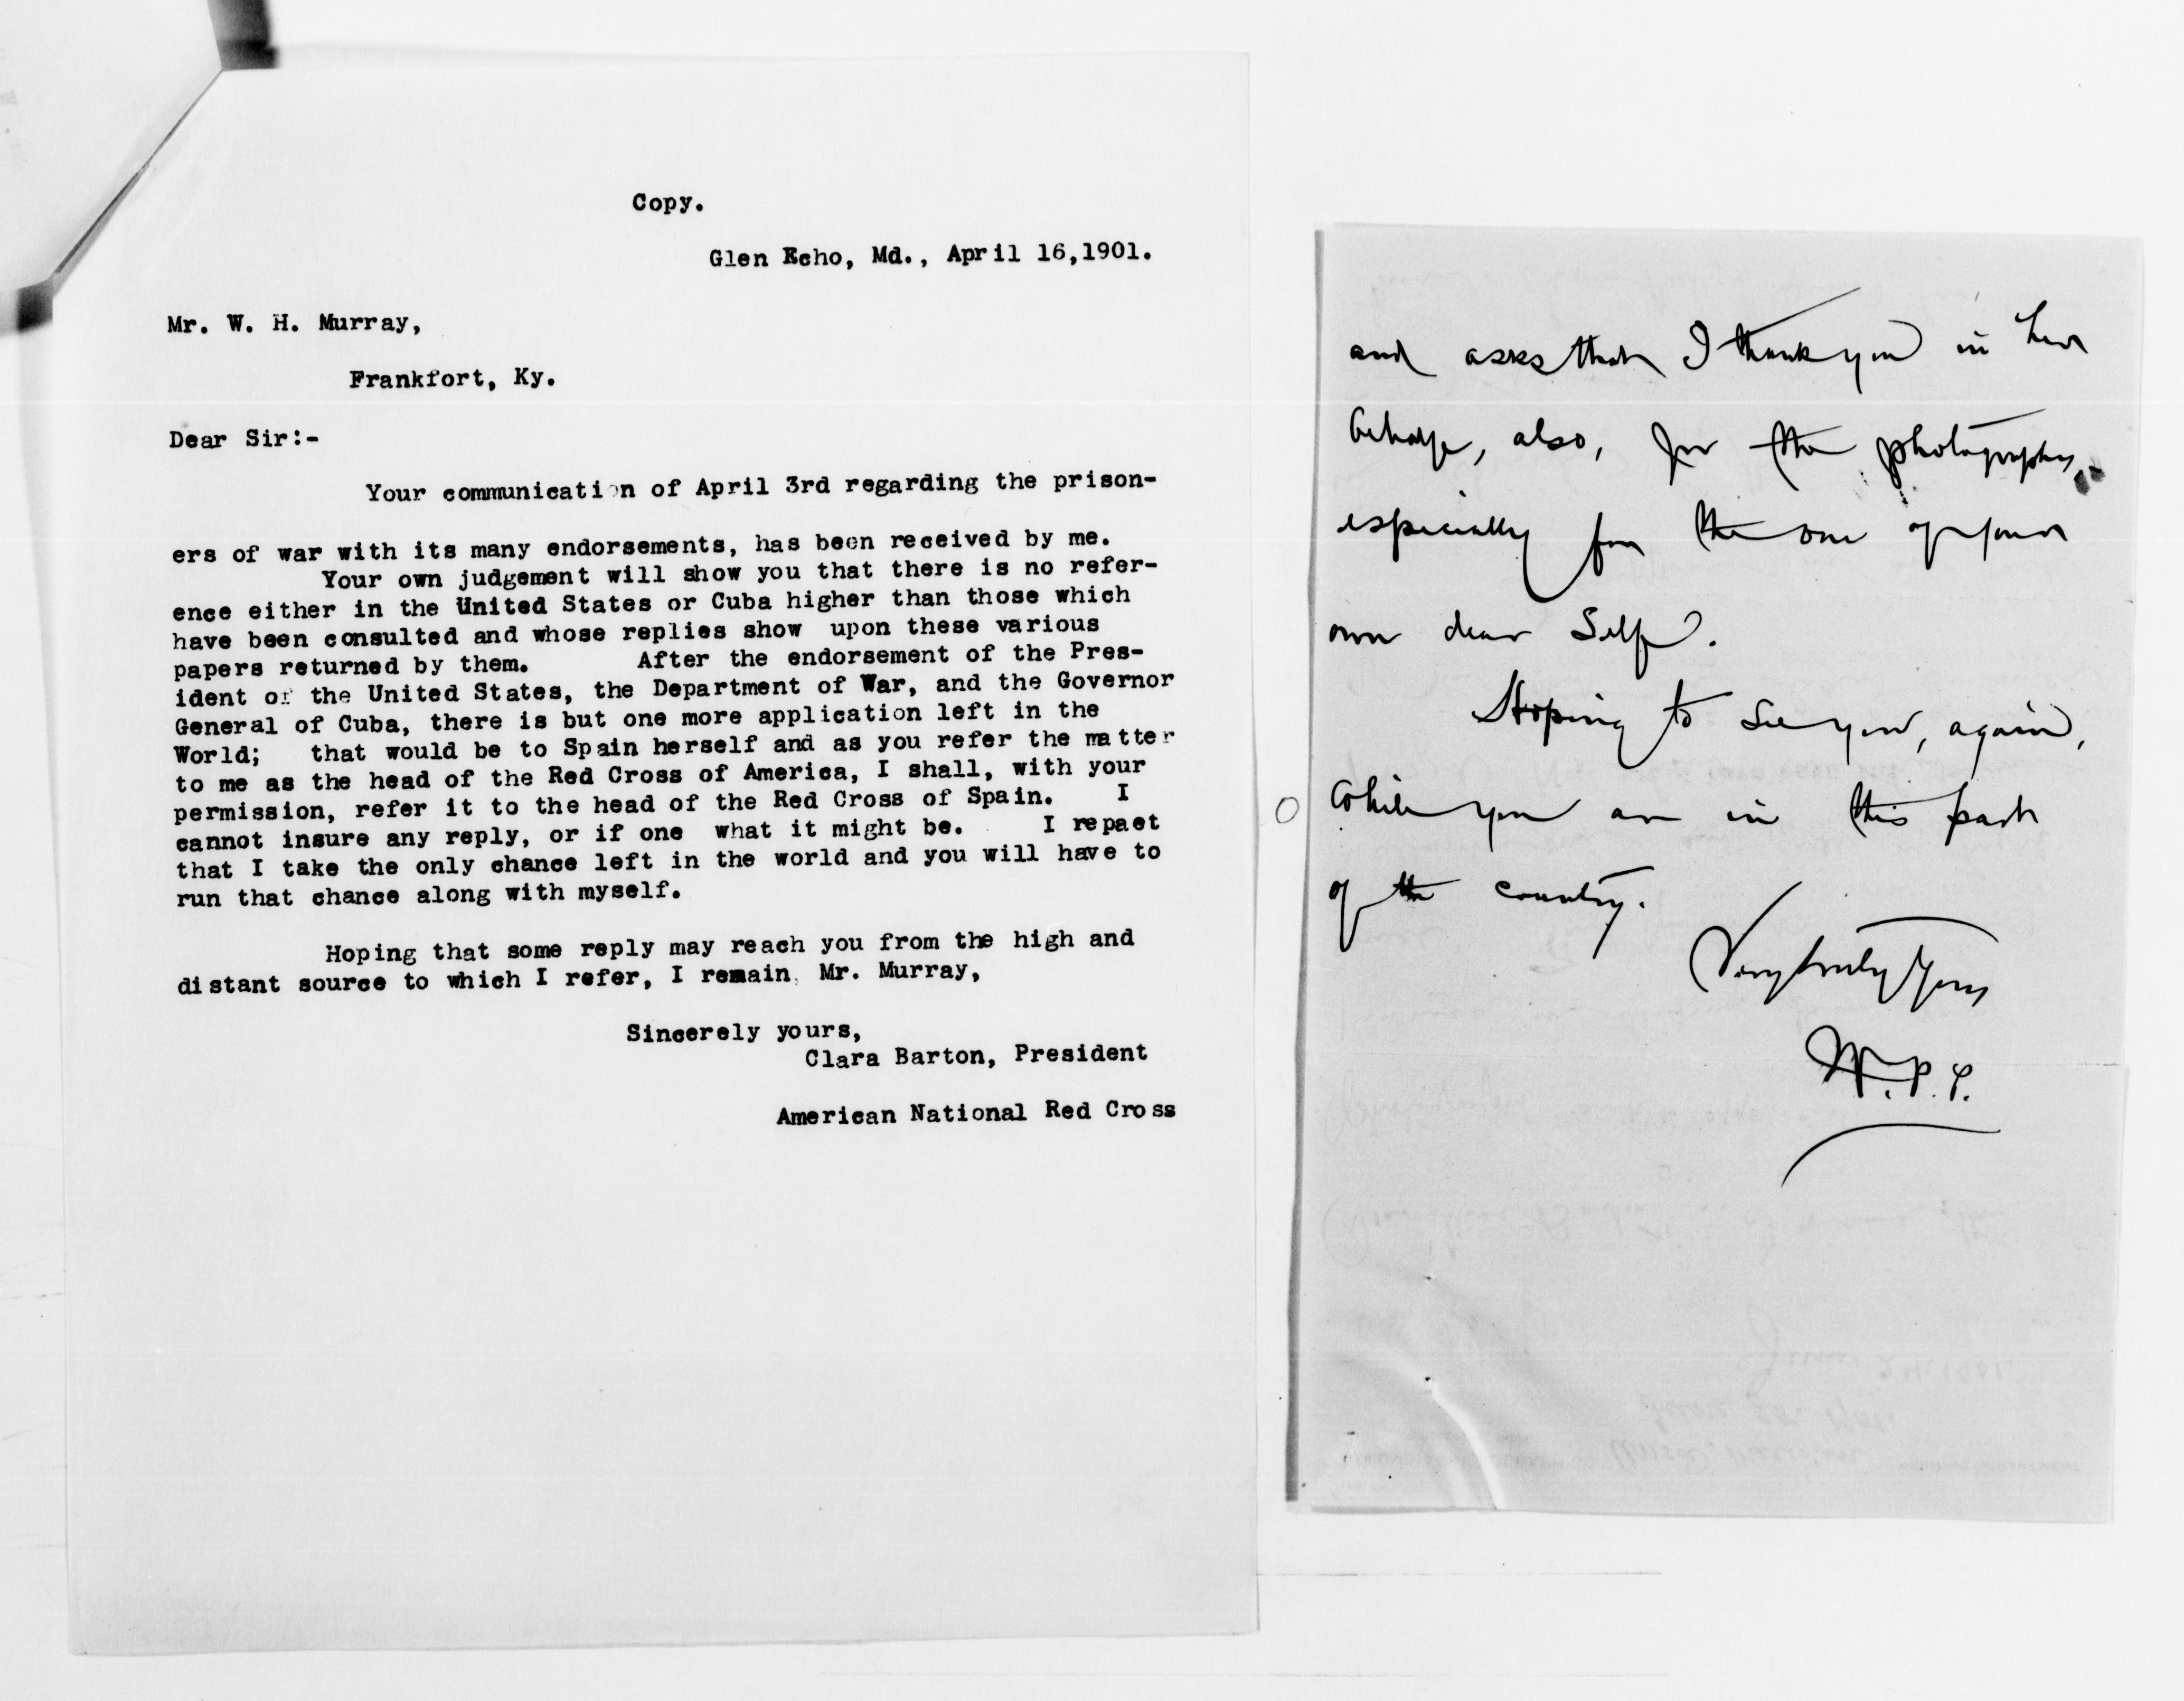 Copy.
Glen Echo, Md., April 16,1901.
Mr. W. H. Murray,
Frankfort, Ky.
Dear Sir:-
Your communication of April 3rd regarding the prison-
ers of war with its many endorsements, has been received by me.
Your own judgement will show you that there is no refer-
ence either in the United States or Cuba higher than those which
have been consulted and whose replies show upon these various
papers returned by them. After the endorsement of the Pres-
ident of the United States, the Department of War, and the Governor
General of Cuba, there is but one more application left in the
World; that would be to Spain herself and as you refer the matter
to me as the head of the Red Cross of America, I shall, with your
permission, refer it to the head of the Red Cross of Spain. I
cannot insure any reply, or if one what it might be. I repaet
that I take the only chance left in the world and you will have to
run that chance along with myself.
Hoping that some reply may reach you from the high and
distant source to which I refer, I remain, Mr. Murray,
Sincerely yours,
Clara Barton, President
American National Red Cross
and asks that I thank you in her
behalf, also, for the photographs,
especially for the one of your
own dear Self.
Hoping to see you, again,
while you are in this part
of the country.
Very truly yours
W.P.P.